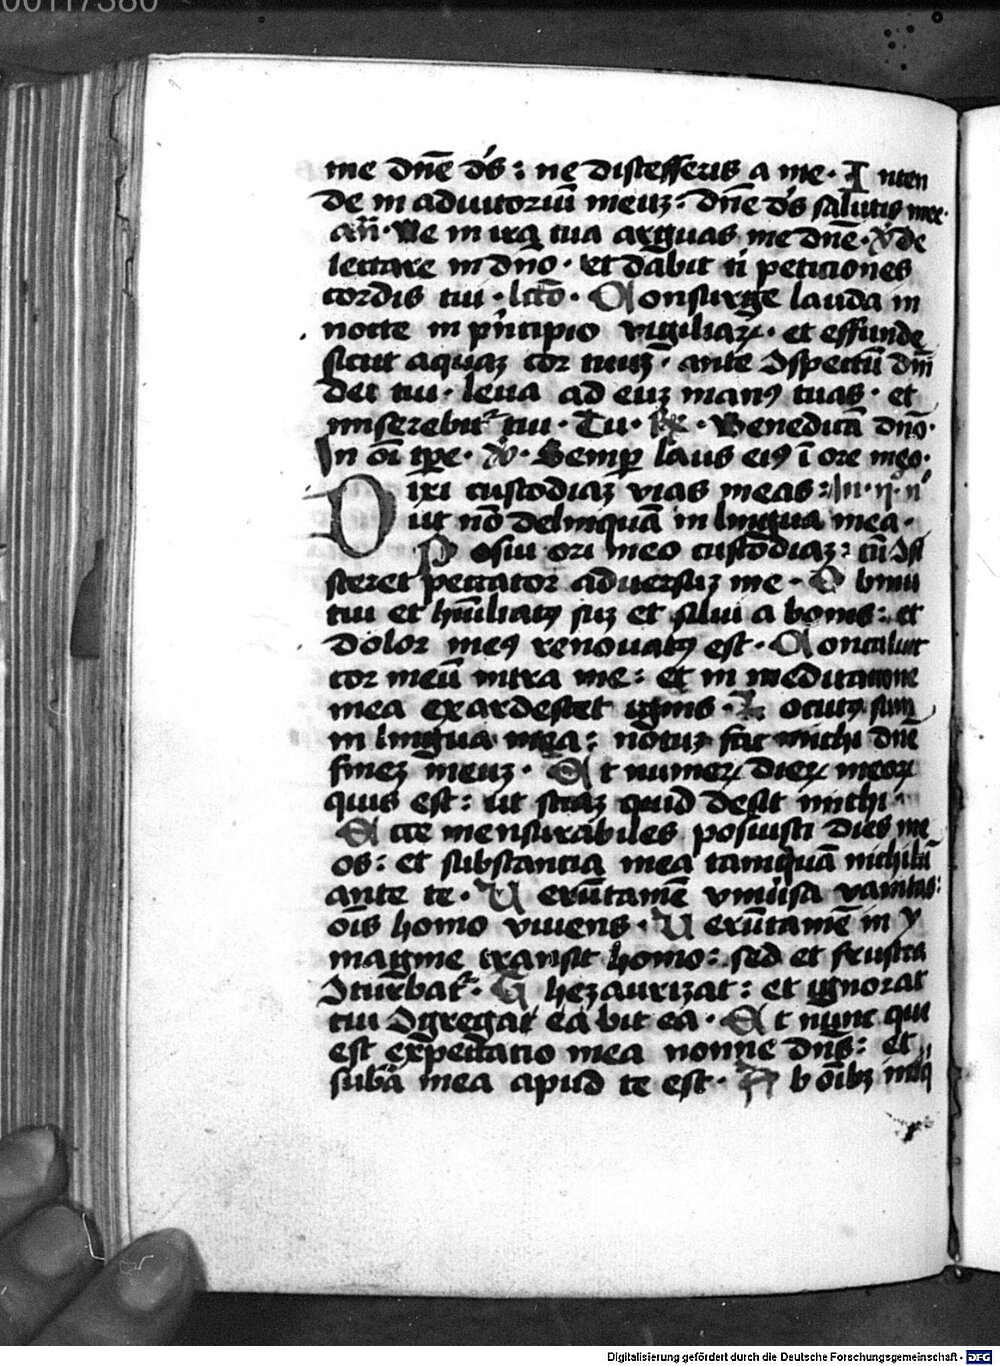 00117380
me dn̄e ds̄ : ne discesseris a me · Inten
de in adiutoriū meuʒ : dn̄e ds̄ salutis mee ·
an̄ · Ne in ira tua arguas me dn̄e · V̄ de
lectare in dn̄o · et dabit ti peticiones
cordis tui · lcō · Consurge lauda in
nocte in pn̄cipio vigiliaꝝ · et effunde
sicut aquaʒ cor tuuʒ · ante ꝯspectū dn̄i
dei tui · leua ad euʒ manꝰ tuas · et
miserebit᷑ tui · Tu · R̄ · Benedicā dn̄o ·
In oī tꝑe · V̄ · Semꝑ laus eiꝰ ī ore meo ·
Dixi custodiaʒ vias meas :
ut nō delinquā in lingua mea ·
Posui ori meo custodiaʒ : cū ꝯsi
steret peccator aduersuʒ me · Obmu
tui et hūiliatꝰ suʒ et silui a bonis : et
dolor meꝰ renouatꝰ est · Concaluit
cor meū intra me : et in meditatione
mea exardescet ignis · Locutꝰ sum
in lingua mea : notuʒ fac michi dn̄e
fineʒ meuʒ · Et numeꝝ dieꝝ meoꝝ
quis est : ut sciaʒ quid desit michi ·
Ecce mensurabiles posuisti dies me
os : et substancia mea tamquā nichilū
ante te · Uerūtamē vniūsa vanitas :
ōis homo viuens · Uerūtamē in y
magine transit homo : sed et frustra
ꝯturbat᷑ · Thezaurizat : et ignorat
cui ꝯgregabit ea · Et nunc que
est expectatio mea nonne dn̄s : et
subā mea apud te est · Ab oībʒ iniq
Digitalisierung gefördert durch die Deutsche Forschungsgemeinschaft - DFG